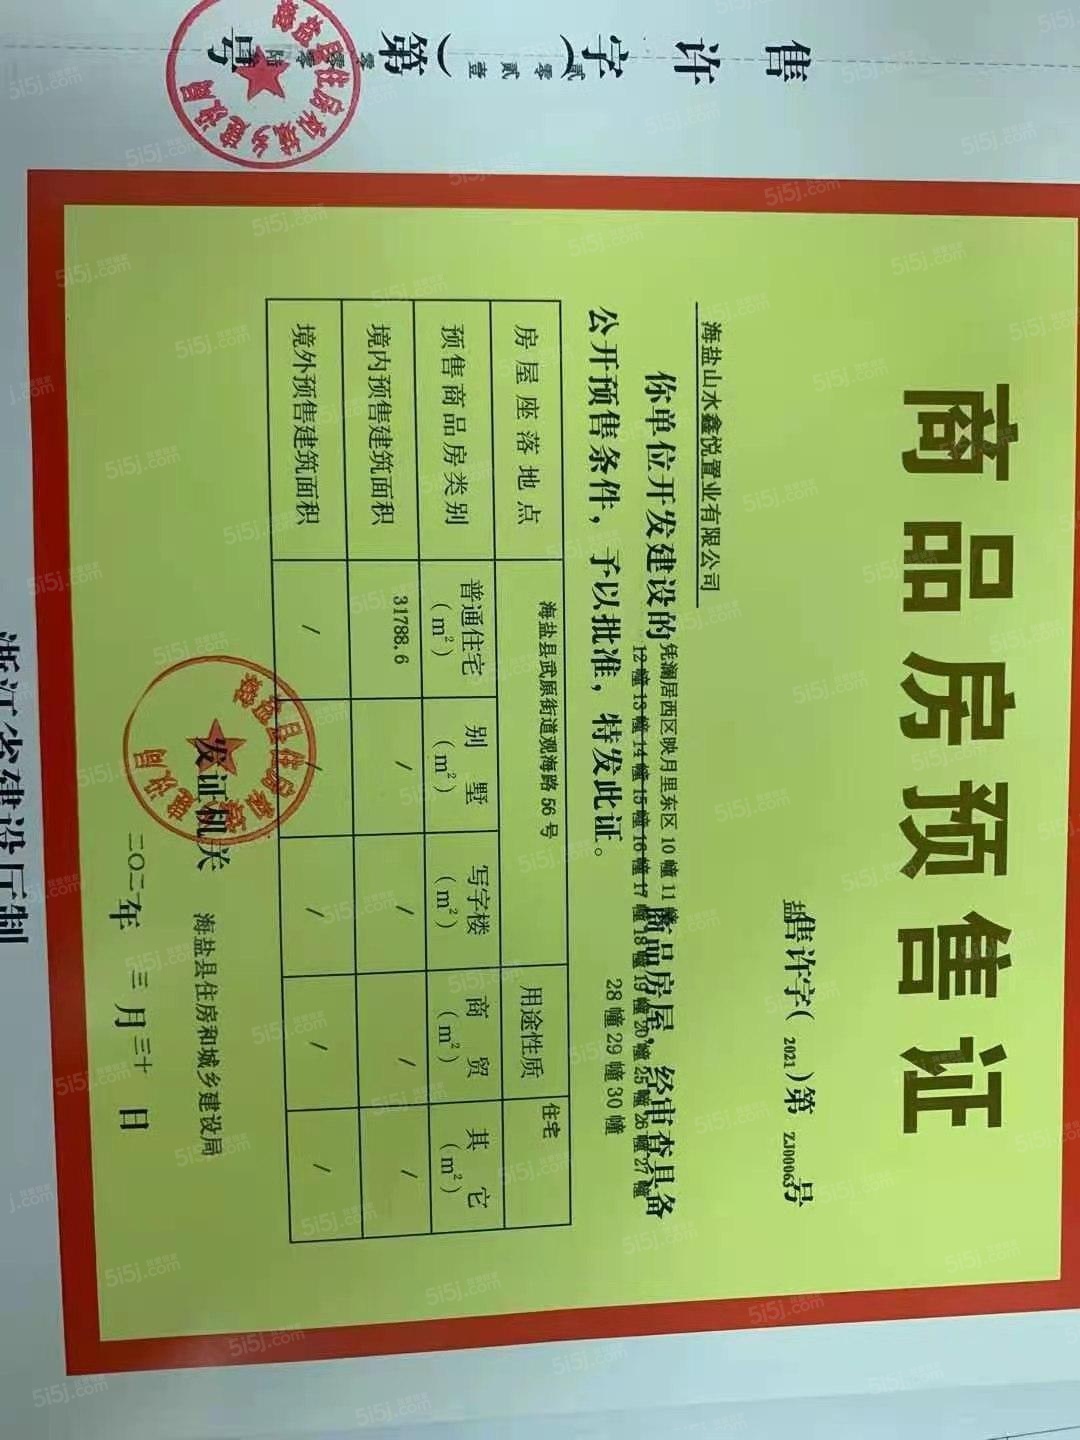 商品房预售证
盐售许字(2021)第ZJ00063号
海盐山水鑫悦置业有限公司
你单位开发建设的凭澜居西区映月里东区10幢11幢
12幢13幢14幢15幢16幢17幢18幢19幢20幢25幢26幢27幢
28幢29幢30幢
商品房屋,经审查具备
公开预售条件,予以批准,特发此证。
房屋座落地点 海盐县武原街道观海路56号 用途性质 住宅
预售商品房类别 普通住宅(m²) 别墅(m²) 写字楼(m²) 商贸(m²) 其它(m²)
境内预售建筑面积 31788.6 / / / /
境外预售建筑面积 / / / / /
发证机关 海盐县住房和城乡建设局
二〇二一年 三月三十日
浙江省建设厅制
售许字(贰零贰壹)第 号
海盐县住房和城乡建设局
5i5j.com